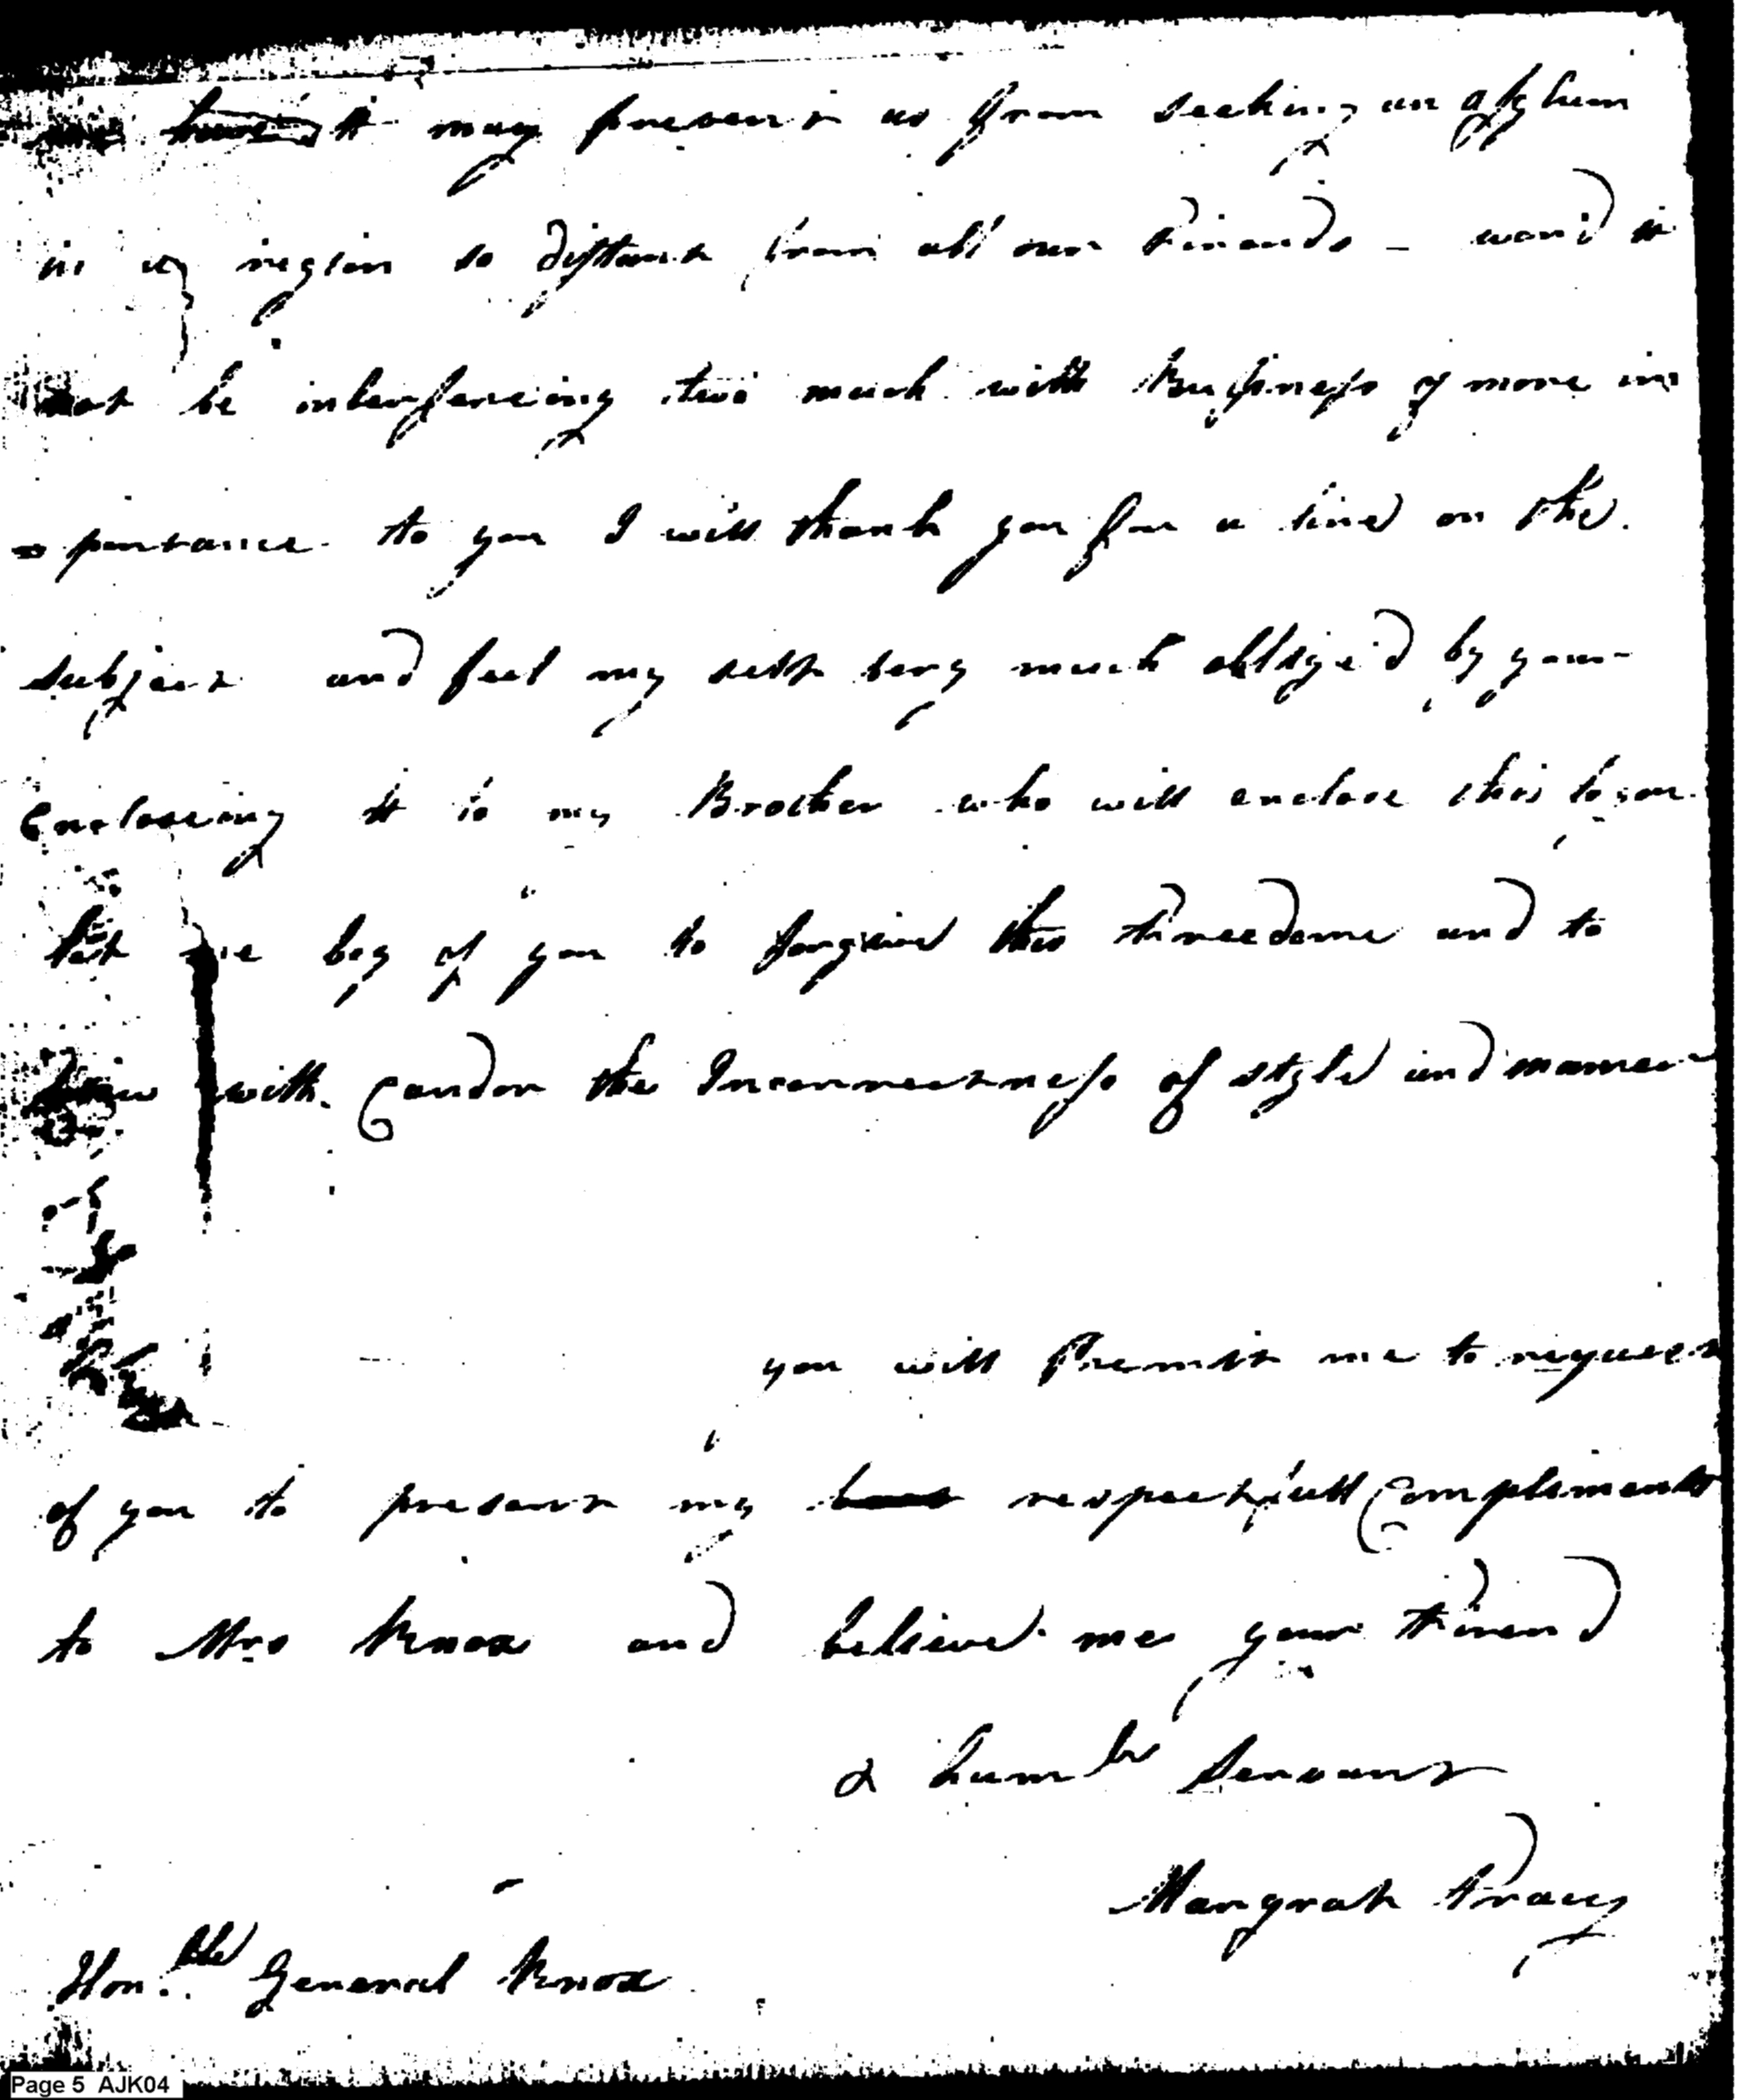 it may prevent us from seeking an assylum
in a region so distant from all our Friends – woud it
not be interfereing two much with Bussiness of more im
portance to you I will thank you for a line on the
subject and feel my self very much oblige'd by your
Encloseing it to my Brother who will enclose this to you
let me beg of you to forgive this Freedome and to
view with Candor the Inconrectness of style and manner
you will Premit me to request
of you to present my respectfull Compliments
to Mrs Knox and believe me your Friend
& humble Servant
Margrat Tracy
Honble General Knox
Page 5 AJK04